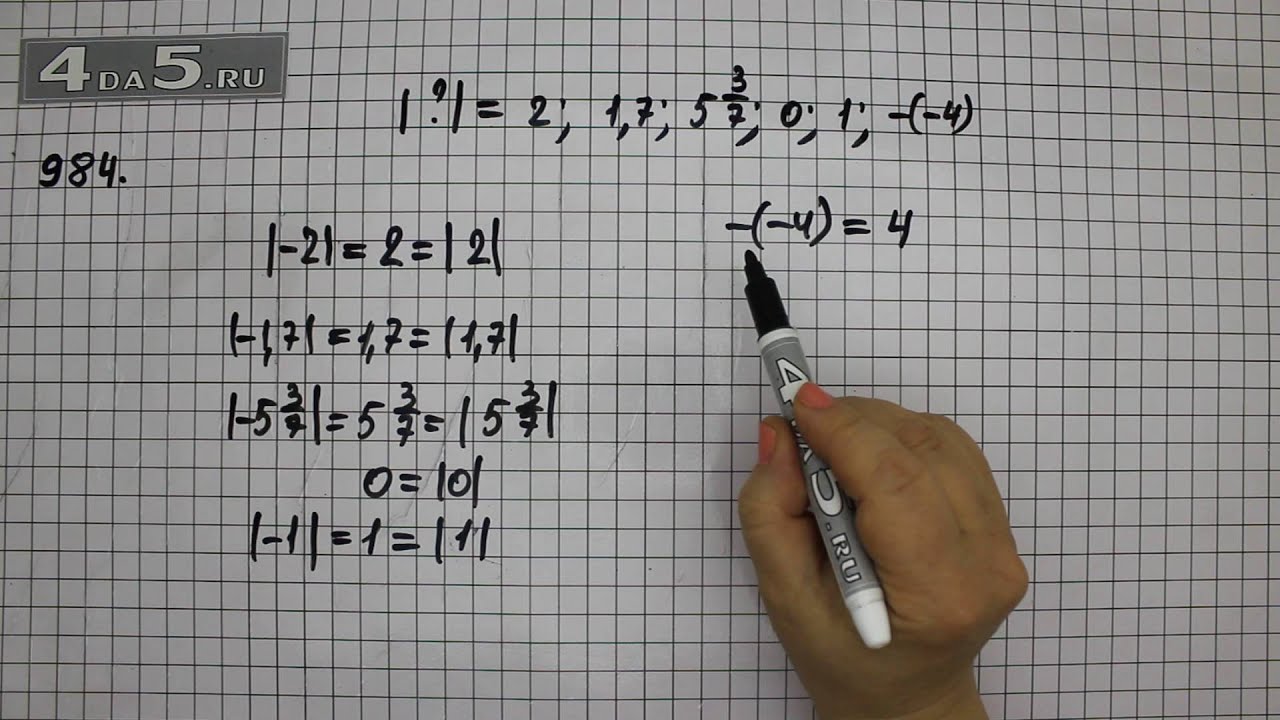 4DA5.RU
|?| = 2; 1,7; 5 3/7; 0; 1; -(-4)
984.
-(-4) = 4
|-2| = 2 = |2|
|-1,7| = 1,7 = |1,7|
|-5 3/7| = 5 3/7 = |5 3/7|
0 = |0|
|-1| = 1 = |1|